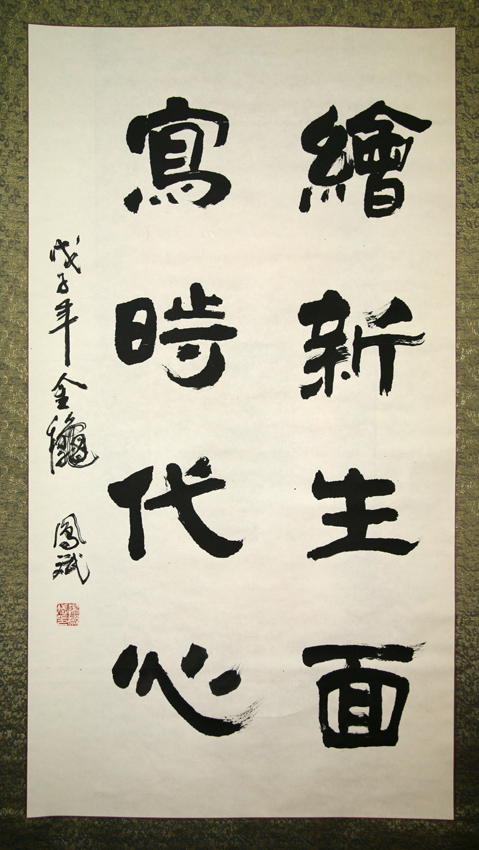 繪新生面
寫時代心
戊子年金龝 鳳斌